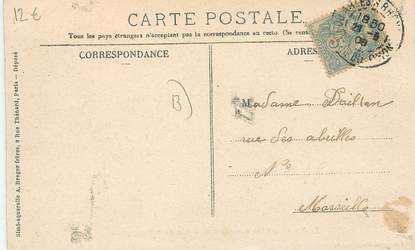 12€
CARTE POSTALE
Tous les pays étrangers n'acceptent pas la correspondance au recto. (Se rens
CORRESPONDANCE
ADRES
B
Madame Daillan
rue des abeilles
N°
Marseille
Simi-aquarelle A. Breger frères, 9 Rue Thénard, Paris — Déposé